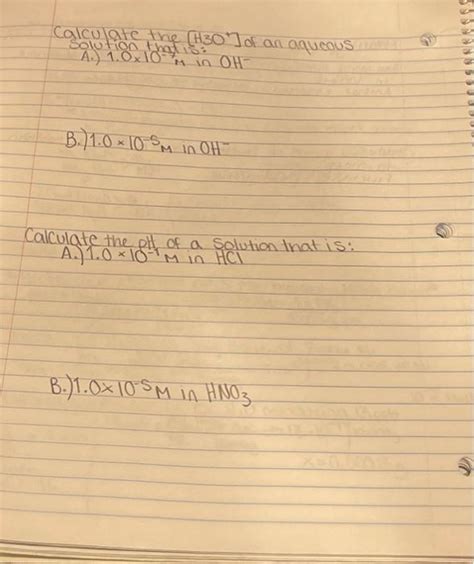 Calculate the [H3O⁺] of an aqueous
solution that is:
A.) 1.0 × 10 M in OH⁻
B.) 1.0 × 10⁻⁵ M in OH⁻
Calculate the pH of a solution that is:
A.) 1.0 × 10 M in HCl
B.) 1.0 × 10⁻⁵ M in HNO₃